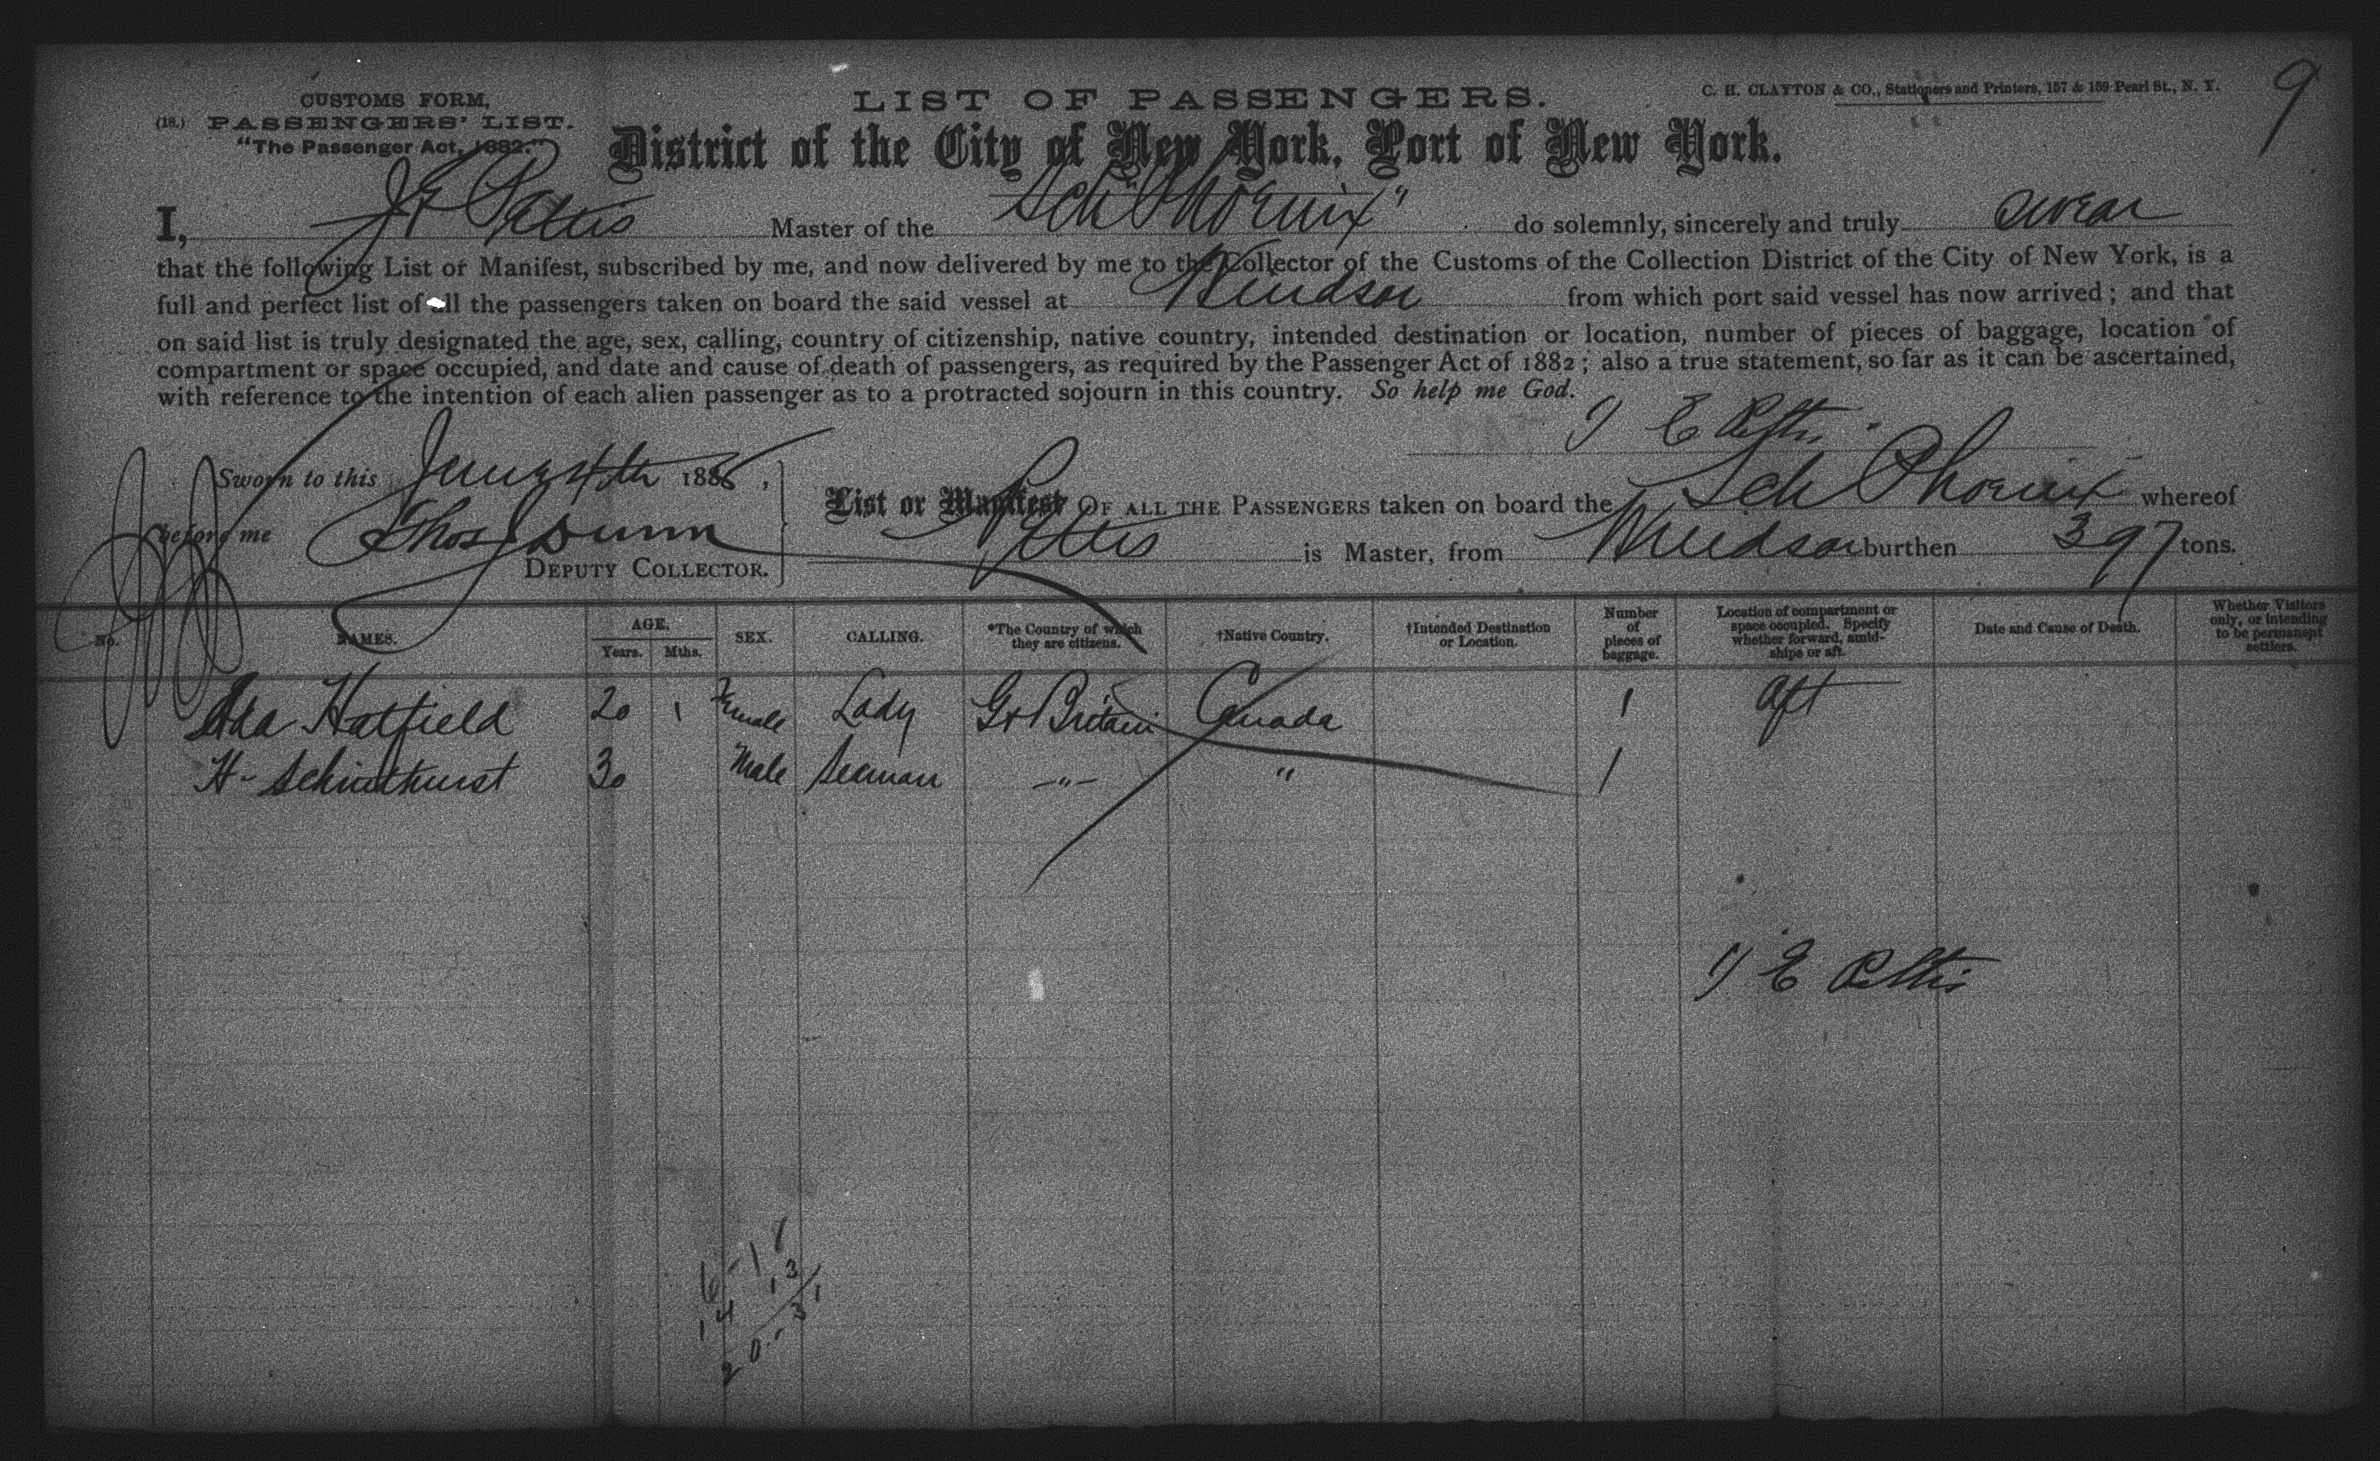 CUSTOMS FORM,
(18.) PASSENGERS' LIST.
"The Passenger Act, 1882."
LIST OF PASSENGERS.
C. H. CLAYTON & CO., Stationers and Printers, 157 & 159 Pearl St., N. Y.
9
District of the City of New York, Port of New York.
I, J E Pettis Master of the Sch "Phoenix" do solemnly, sincerely and truly swear
that the following List or Manifest, subscribed by me, and now delivered by me to the Collector of the Customs of the Collection District of the City of New York, is a
full and perfect list of all the passengers taken on board the said vessel at Windsor from which port said vessel has now arrived; and that
on said list is truly designated the age, sex, calling, country of citizenship, native country, intended destination or location, number of pieces of baggage, location of
compartment or space occupied, and date and cause of death of passengers, as required by the Passenger Act of 1882; also a true statement, so far as it can be ascertained,
with reference to the intention of each alien passenger as to a protracted sojourn in this country. So help me God.
J E Pettis
Sworn to this June 4th 188
before me Thos J Dunn
DEPUTY COLLECTOR.
List or Manifest OF ALL THE PASSENGERS taken on board the Sch Phoenix whereof
Pettis is Master, from Windsor burthen 397 tons.
No. NAMES. AGE. Years. Mths. SEX. CALLING. *The Country of which they are citizens. †Native Country. †Intended Destination or Location. Number of pieces of baggage. Location of compartment or space occupied. Specify whether forward, amidships or aft. Date and Cause of Death. Whether Visitors only, or intending to be permanent settlers.
Ada Hatfield 20 1 Female Lady Gt Britain Canada 1 aft
H - 30 Male Seaman —"— " 1
J E Pettis